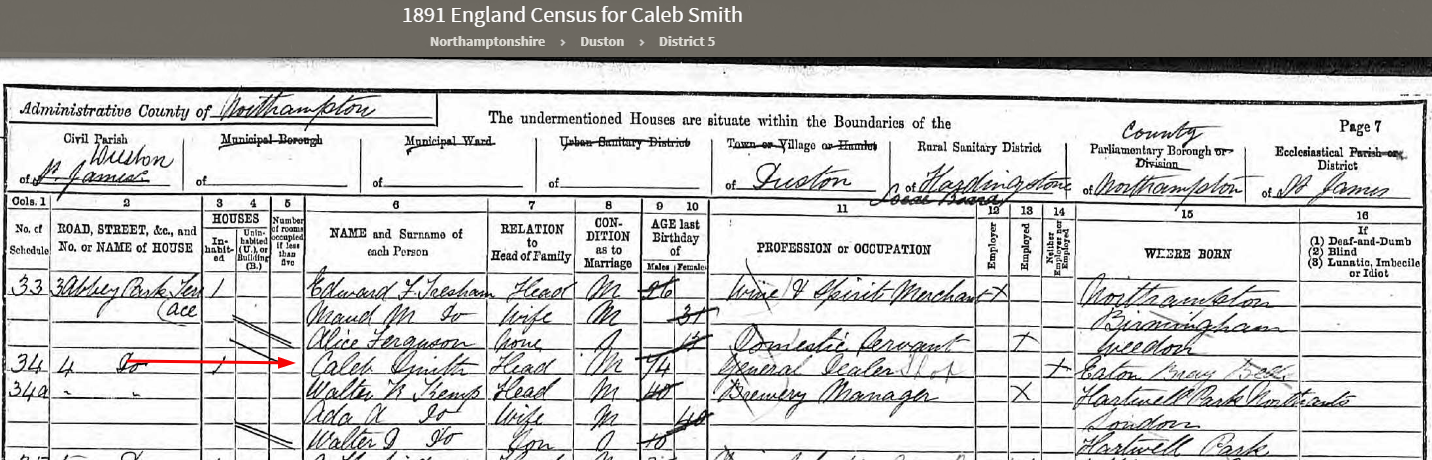 1891 England Census for Caleb Smith
Northamptonshire > Duston > District 5
Administrative County of Northampton
The undermentioned Houses are situate within the Boundaries of the
Page 7
Civil Parish
Municipal Borough
Municipal Ward
Urban Sanitary District
Town or Village or Hamlet
Rural Sanitary District
County
Parliamentary Borough or Division
Ecclesiastical Parish or District
Duston
of St. James
of
of
of
of Duston
of Hardingstone
Local Board
of Northampton
of St James
Cols. 1 2 3 4 5 6 7 8 9 10 11 12 13 14 15 16
No. of Schedule
ROAD, STREET, &c., and No. or NAME of HOUSE
HOUSES
In-habit-ed
Unin-habited (U.), or Building (B.)
Number of rooms occupied if less than five
NAME and Surname of each Person
RELATION to Head of Family
CON-DITION as to Marriage
AGE last Birthday of
Males Females
PROFESSION or OCCUPATION
Employer
Employed
Neither Employer nor Employed
WHERE BORN
If
(1) Deaf-and-Dumb
(2) Blind
(3) Lunatic, Imbecile or Idiot
33 3 Abbey Park Terr 1 Edward F Tresham Head M 26 Wine & Spirit Merchant X Northampton
ace Maud M Do Wife M 31 Birmingham
Alice Ferguson Domestic Servant X Weedon
34 4 Do 1 Caleb Smith Head M 74 General Dealer X Eaton Bray Beds
34a " " Walter R Kemp Head M 40 Brewery Manager X Hartwell Park Northants
Ada A Do Wife M 40 London
Walter D Do Son 10 Hartwell Park